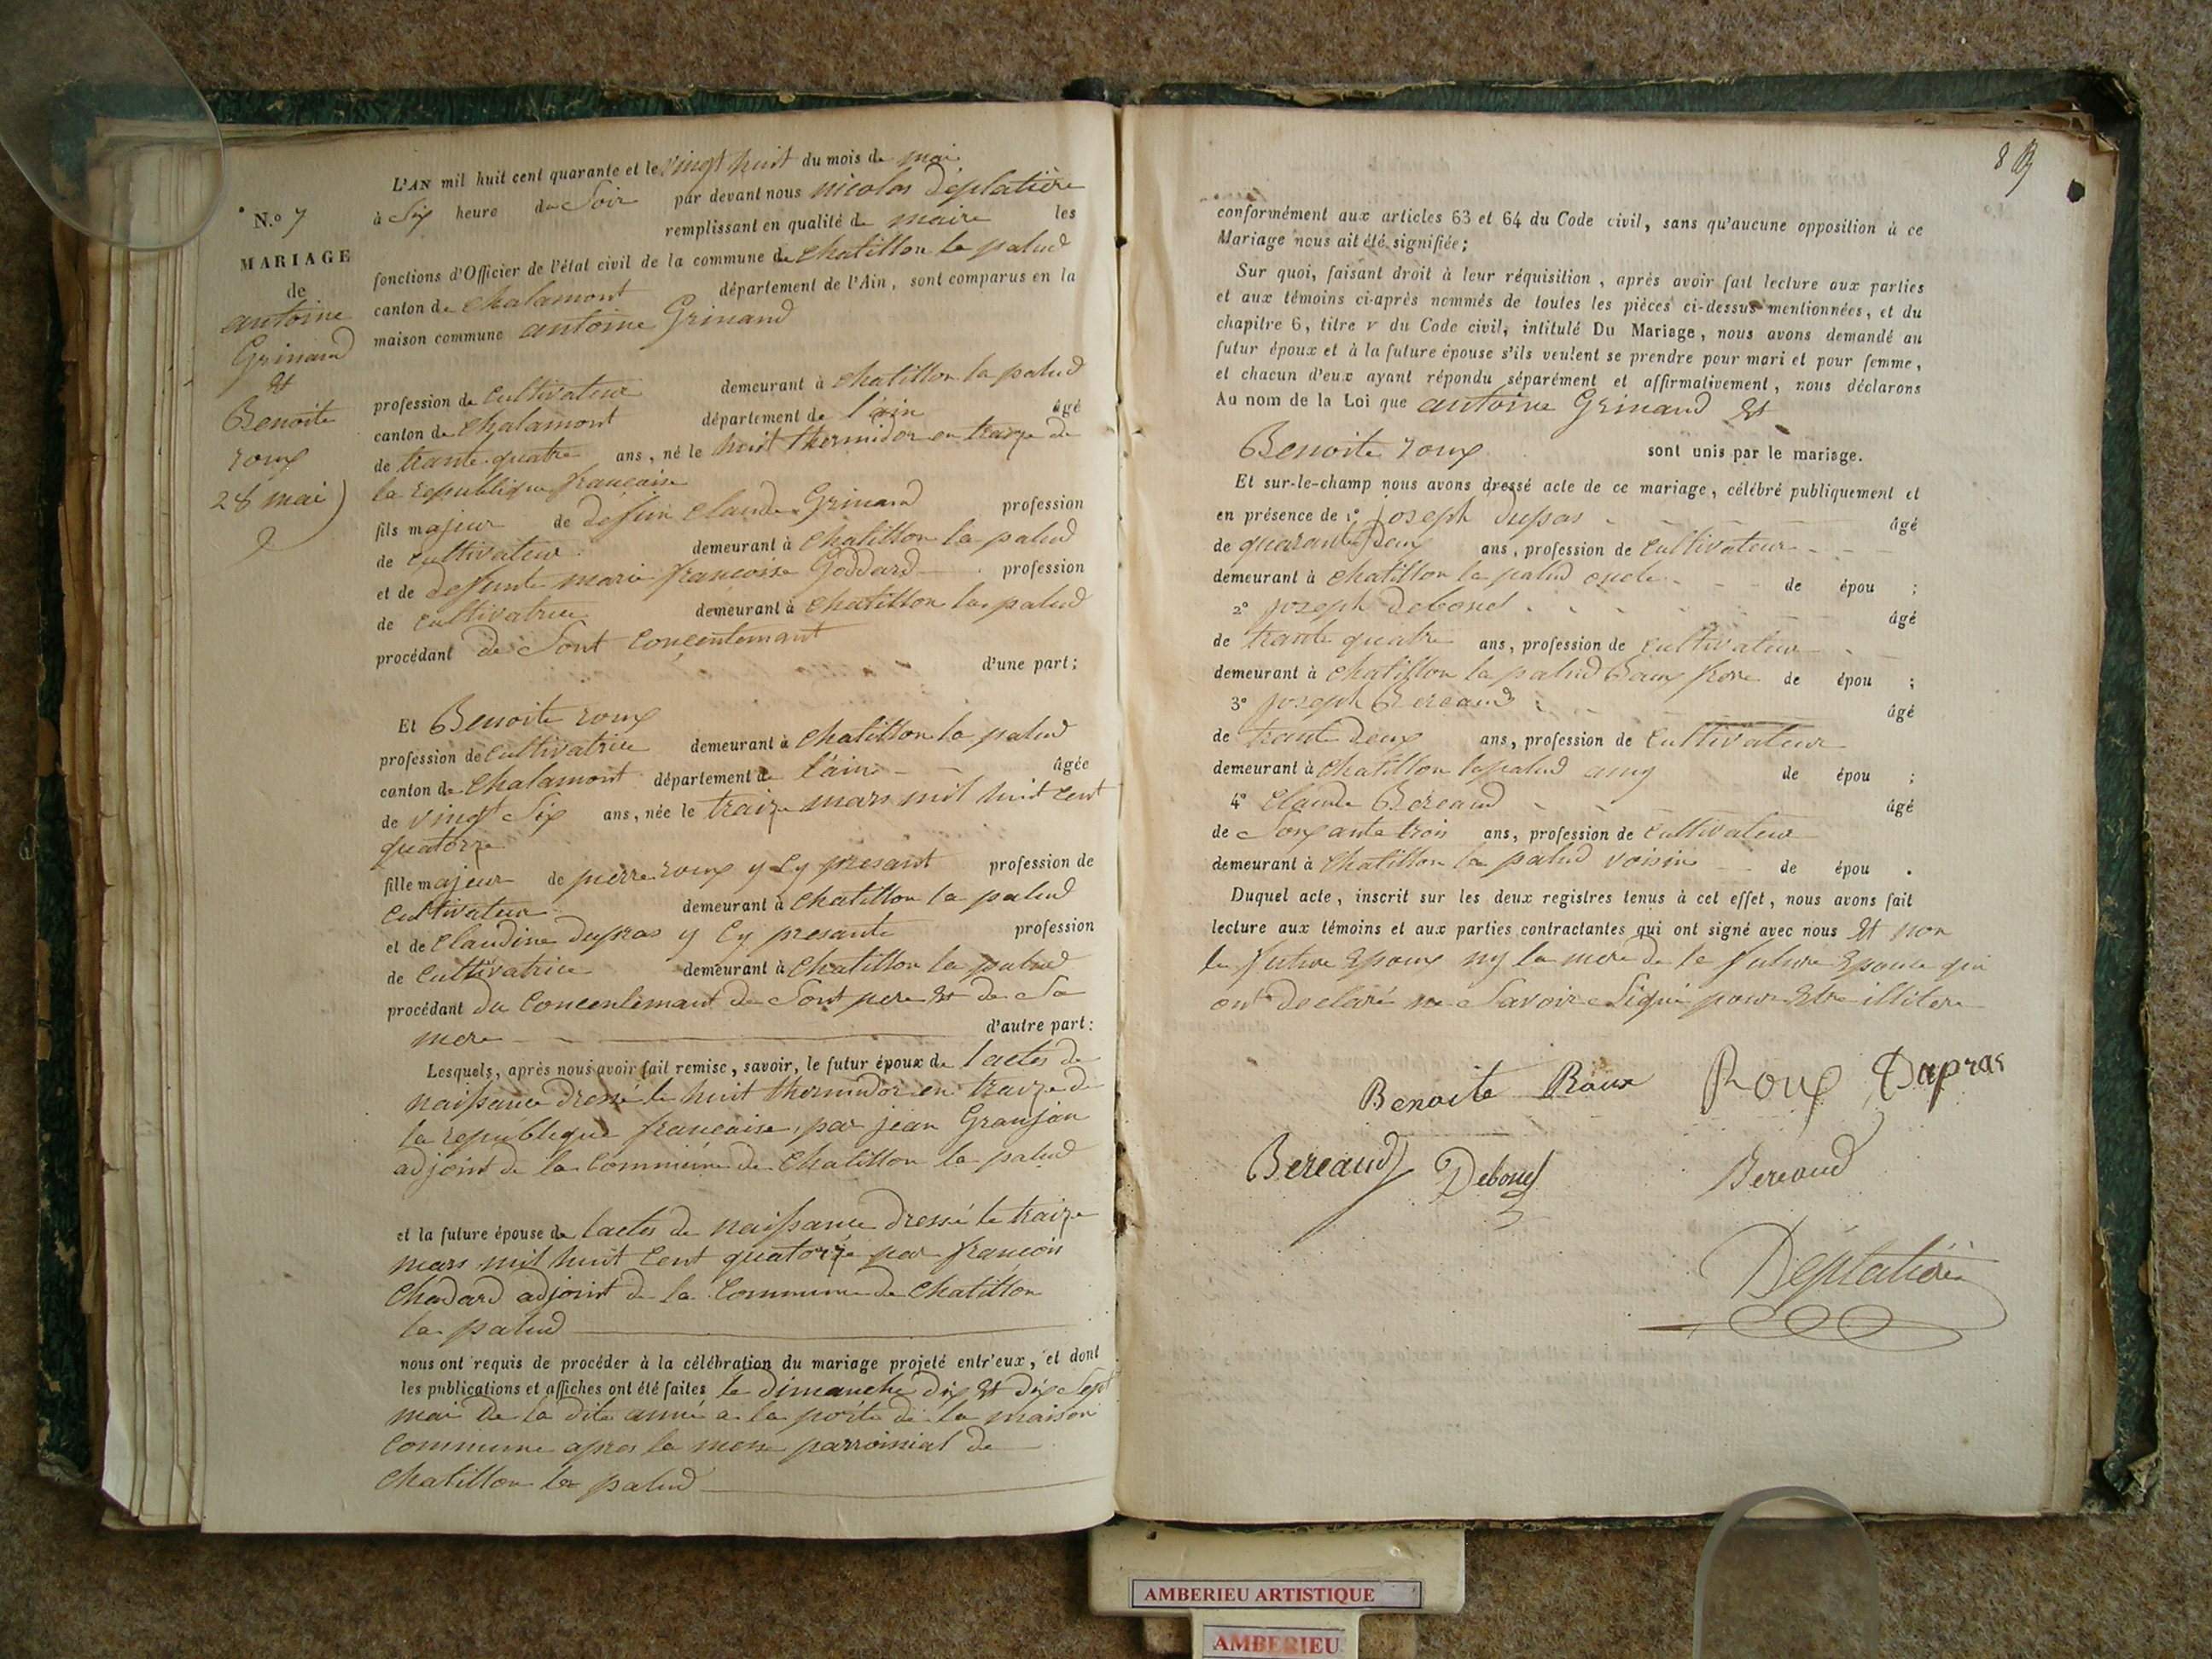 N.º 7
MARIAGE
de
antoine
Grinand
Et
Benoite
roux
28 mai
L'AN mil huit cent quarante et le vingt huit du mois de mai
à Six heure du Soir par devant nous nicolas Déplatière
remplissant en qualité de maire les
fonctions d'Officier de l'état civil de la commune de chatillon la palud
canton de chalamont département de l'Ain, sont comparus en la
maison commune antoine Grinand
profession de Cultivateur demeurant à chatillon la palud
canton de chalamont département de l'ain âgé
de trante quatre ans, né le huit thermidor en traize de
la republique francaise
fils majeur de defun claude Grinand profession
de cultivateur demeurant à chatillon la palud
et de defunte marie francoise Goddard profession
de cultivatrice demeurant à chatillon la palud
procédant de Sont concentemant
d'une part;
Et Benoite roux
profession de cultivatrice demeurant à chatillon la palud
canton de chalamont département de l'ain âgée
de vingt Six ans, née le traize mars mil huit cent
quatorze
fille majeur de pierre roux y Cy presant profession de
cultivateur demeurant à chatillon la palud
et de claudine dupras y Cy presante profession
de cultivatrice demeurant à chatillon la palud
procédant du concentemant de Sont pere Et de Sa
mere d'autre part:
Lesquels, après nous avoir fait remise, savoir, le futur époux de l'actes de
naissance dressé le huit thermidor en traize de
la republique francaise, par jean Granjan
adjoint de la commune de chatillon la palud
et la future épouse de lactes de naissance dressé le traize
mars mil huit cent quatorze par francois
chadard adjoint de la commune de chatillon
la palud
nous ont requis de procéder à la célébration du mariage projeté entr'eux, et dont
les publications et affiches ont été faites le dimanche dix Et dix Sept
mai de la dite anné a la porte de la maison
commune apres la messe parroissial de
chatillon la palud
8
conformément aux articles 63 et 64 du Code civil, sans qu'aucune opposition à ce
Mariage nous ait été signifiée;
Sur quoi, faisant droit à leur réquisition, après avoir fait lecture aux parties
et aux témoins ci-après nommés de toutes les pièces ci-dessus mentionnées, et du
chapitre 6, titre v du Code civil, intitulé Du Mariage, nous avons demandé au
futur époux et à la future épouse s'ils veulent se prendre pour mari et pour femme,
et chacun d'eux ayant répondu séparément et affirmativement, nous déclarons
Au nom de la Loi que antoine Grinand Et
Benoite roux sont unis par le mariage.
Et sur-le-champ nous avons dressé acte de ce mariage, célébré publiquement et
en présence de 1º joseph dupras âgé
de quarante deux ans, profession de cultivateur
demeurant à chatillon la palud oncle de épou ;
2º joseph Debonel âgé
de trante quatre ans, profession de cultivateur
demeurant à chatillon la palud Baux frere de épou ;
3º joseph Bereaud âgé
de trante deux ans, profession de Cultivateur
demeurant à chatillon la palud amy de épou ;
4º claude Béréaud âgé
de Soixante trois ans, profession de cultivateur
demeurant à chatillon la palud voisin de épou .
Duquel acte, inscrit sur les deux registres tenus à cet effet, nous avons fait
lecture aux témoins et aux parties contractantes qui ont signé avec nous Et non
le future Epoux ny la mere de la future Epouse qui
ont declaré ne Savoir Signé pour Etre illitere
Benoite Roux Roux Dapras
Bereaud Debonel Bereaud
Déplatière
AMBERIEU ARTISTIQUE
AMBERIEU